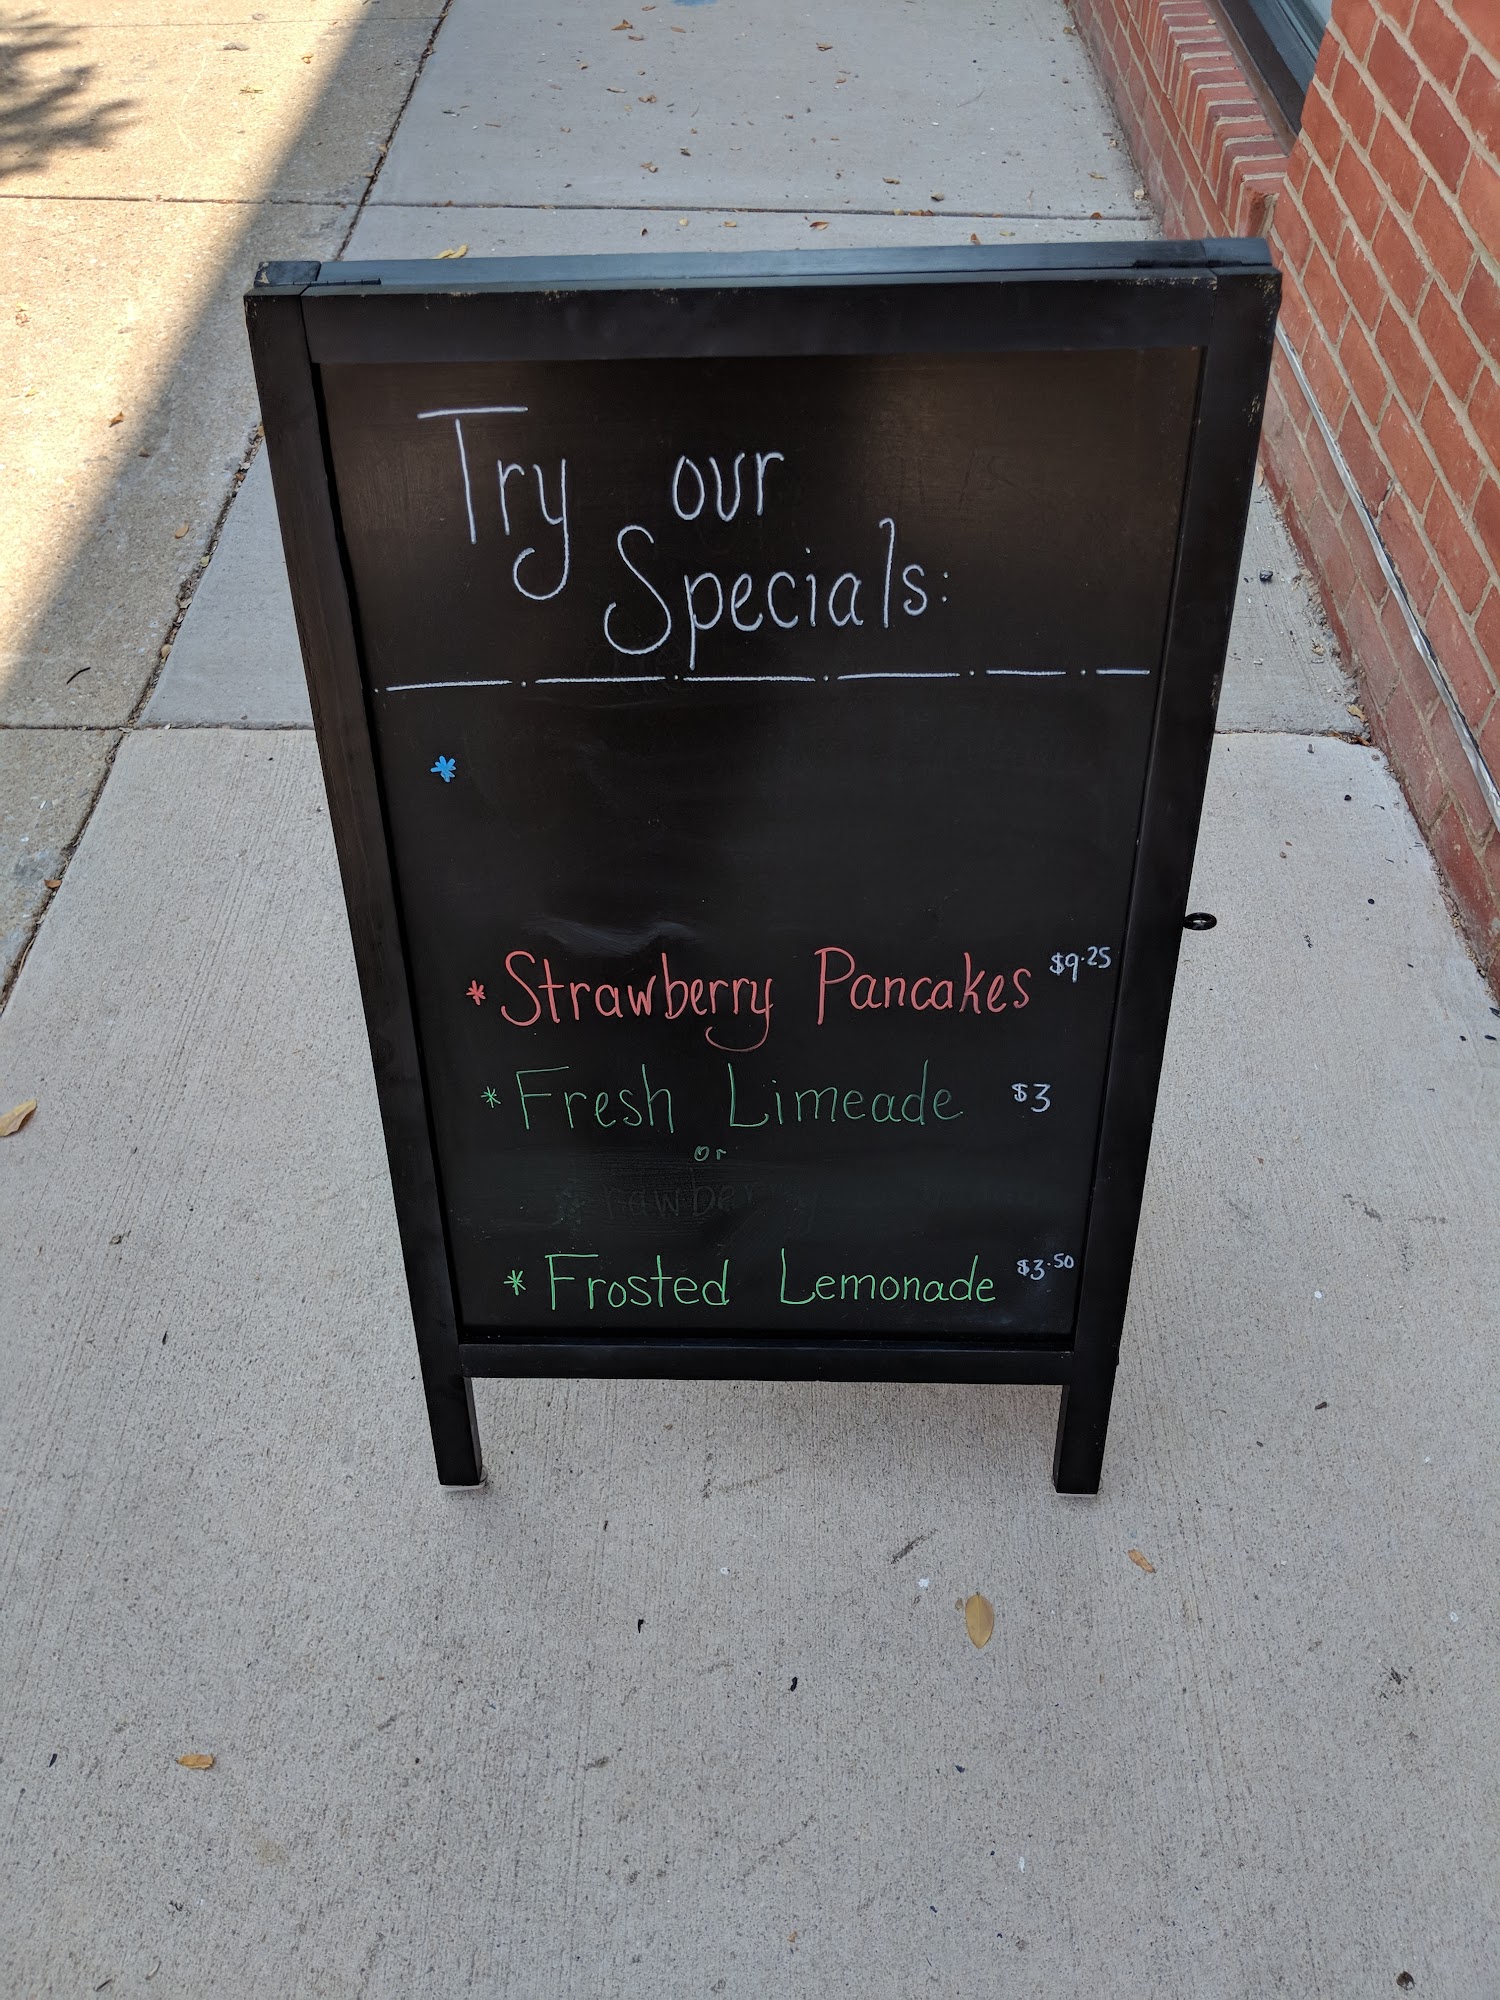 Try our
Specials:
*
* Strawberry Pancakes $9.25
* Fresh Limeade $3
or
* Frosted Lemonade $3.50